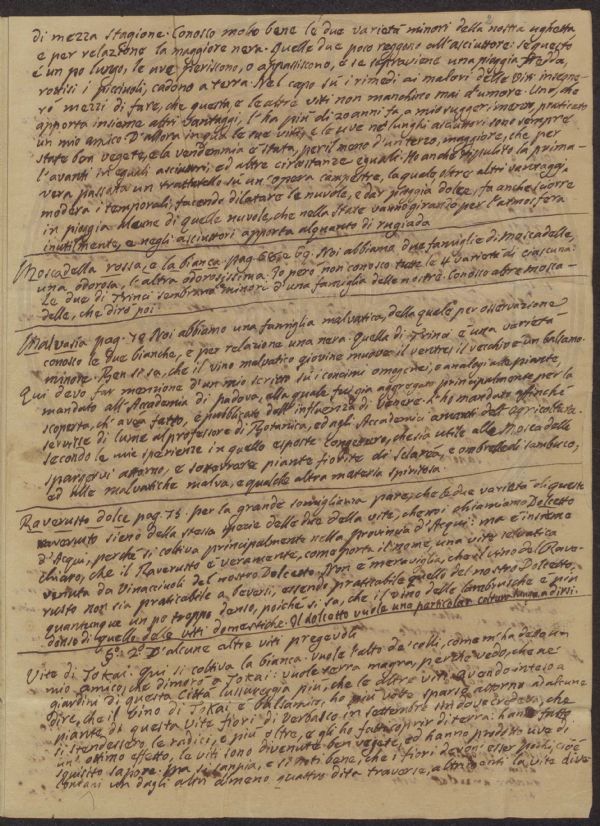 di mezza stagione. Conosco molto bene le due varietà minori della nostra ughetta
e per relazione la maggiore nera. Quelle due poco reggono all'asciuttore: se questo
è un po lungo, le uve periscono, o appassiscono, e se sopraviene una pioggia fredda,
rottisi i picciuoli, cadono a terra. Nel capo sù i rimedj ai malori delle Viti insegne-
rò mezzi di fare, che questa, e le altre viti non manchino mai d'umore. Uno, che
apporta insieme altri vantaggi, l'ha più di 20 anni fa, a mio suggerimento, praticato
un mio amico. D'allora in quà le sue viti, e le uve ne' lunghi asciuttori sono sempre
state ben vegete, e la vendemmia è stata, per il mono d'un terzo, maggiore, che per
l'avanti in eguali asciuttori, ed altre circostanze eguali. Ho anche la prima-
vera passata un trattatello sù un'opera campestre, la quale oltre altri vantaggi,
modera i temporali, facendo dilatare le nuvole, e dar pioggia dolce, fa anche sciorre
in pioggia alcune di quelle nuvole, che nella State vanno girando per l'atmosfera
inutilmente, e negli asciuttori apporta alquanto di rugiada
Moscadella rossa, e la bianca. pag. 68. e 69. Noi abbiamo due famiglie di moscadelle
una odorosa, l'altra odorosissima. Io però non conosco tutte le 4 varietà di ciascuna:
Le due di Trinci sembrano minori d'una famiglia delle nostre. Conosco altre mosca-
delle, che dirò poi
Malvasia pag. 70 Noi abbiamo una famiglia malvatica, della quale per osservazione
conosco le due bianche, e per relazione una nera. Quella di Trinci è una varietà
minore. Ben si sa, che il vino malvatico giovine muove il ventre, il vecchio è un balsamo.
Qui devo far menzione d'un mio scritto sù i concimi omogenei, e analogi alle piante
mandato all'Accademia di padova, alla quale fui già aggregato principalmente per la
scoperta, ch'avea fatto, e pubblicato dell'influenza di Venere. L'ho mandato affinché
servisse di lume al professore di Botanica, ed agli Accademici amanti dell'agricoltura.
secondo le mie sperienze in quello esposte congetturo, che sia utile alle Moscadelle
spargervi attorno, e sotterrare piante fiorite di sclarea, e ombrelle di sambuco,
ed alle malvatiche malva, e qualche altra materia spiritosa.
Raverusto dolce pag. 73. per la grande somiglianza pare, che le due varietà di queste
raverusto sieno della stessa specie delle due della vite, che noi chiamiamo Dolcetto
d'Acqui, perché si coltiva principalmente nella provincia d'Acqui: ma è insieme
chiaro, che il Raverusto è veramente, come porta il nome, una vite selvatica
venuta da Vinacciuoli del nostro Dolcetto. Non è meraviglia, che il vino del Rave-
rusto non sia praticabile a beversi, essendo praticabile quello del nostro Dolcetto,
quantunque un po troppo denso, poiché si sa, che il vino delle lambrusche è più
denso di quello delle viti domestiche. Il dolcetto vuole una particolar coltura
§.° 2.° D'alcune altre viti pregevoli
Vite di Tokai. Qui si coltiva la bianca. vuole l'alto de' colli, come m'ha detto un
mio amico, che dimorò a Tokai: vuole terra magra, perché vedo, che ne'
giardini di questa Città lussureggia più, che le altre viti. Avendo inteso a
dire, che il Vino di Tokai è balsamico, ho più volte sparso attorno ad alcune
piante di questa Vite fiori di Verbasco in settembre sin dove credeva, che
si stendessero le radici, e più oltre, e gli ho fatto coprir di terra: hanno fatto
un ottimo effetto, le viti sono divenute ben vegete, ed hanno prodotto uve di
squisito sapore. Ma si sappia, e si noti bene, che i fiori devon esser pochi, cioè
lontani un dagli altri almeno quattro dita traverse, altrimenti la vite dive-